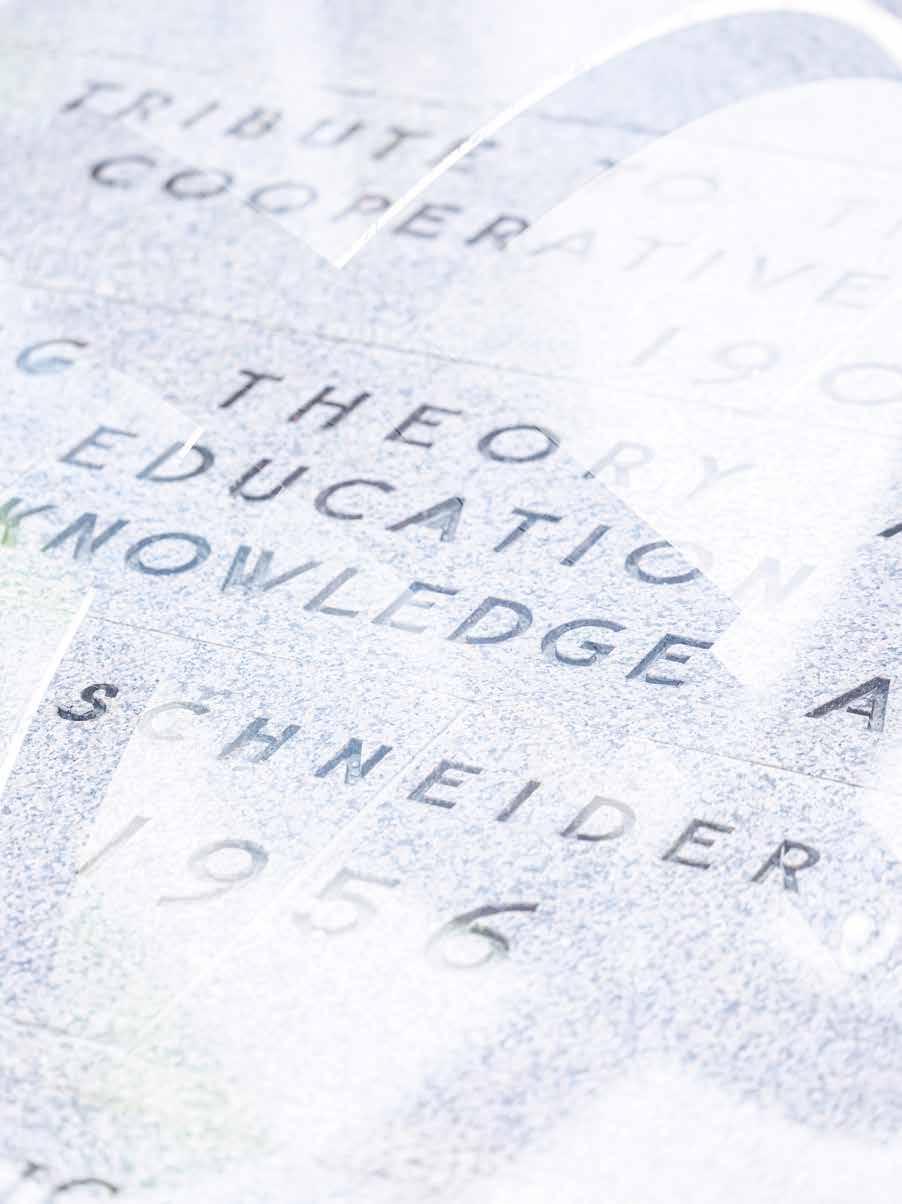 TRIBUTE TO
COOPERATIVE
THEORY
EDUCATION
KNOWLEDGE
SCHNEIDER
1956